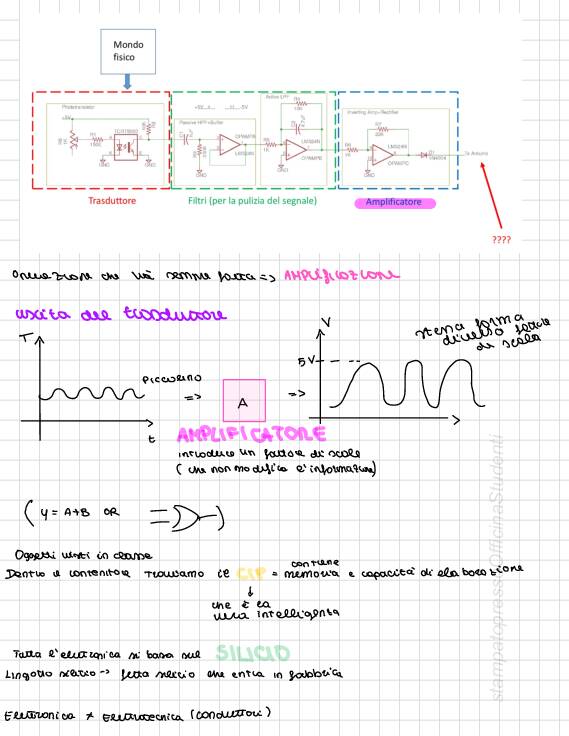 Mondo
fisico
Phototransistor
+5V
TCRT5000
GND
GND
+5V
-5V
Passive HPF+Buffer
OPAMP
LM324N
GND
Active LPF
LM324N
OPAMP
GND
Inverting Amp+Rectifier
LM324N
OPAMP
GND
To Arduino
Trasduttore
Filtri (per la pulizia del segnale)
Amplificatore
????
Operazione che va sempre fatta => AMPLIFICAZIONE
uscita del trasduttore
T
t
piccolino
=>
A
=>
V
5V
stessa forma
diverso fattore
di scala
AMPLIFICATORE
introduce un fattore di scala
(che non modifica l'informazione)
( y = A+B OR )
Oggetti visti in classe
Dentro il contenitore troviamo il CIP = contiene memoria e capacità di elaborazione
che è la
vera intelligenza
Tutta l'elettronica si basa sul SILICIO
Lingotto silicio -> fetta silicio che entra in fabbrica
Elettronica ≠ Elettrotecnica (conduttori)